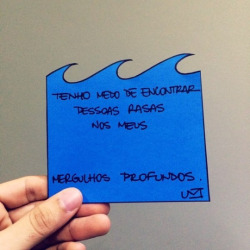 TENHO MEDO DE ENCONTRAR
PESSOAS RASAS
NOS MEUS
MERGULHOS PROFUNDOS.